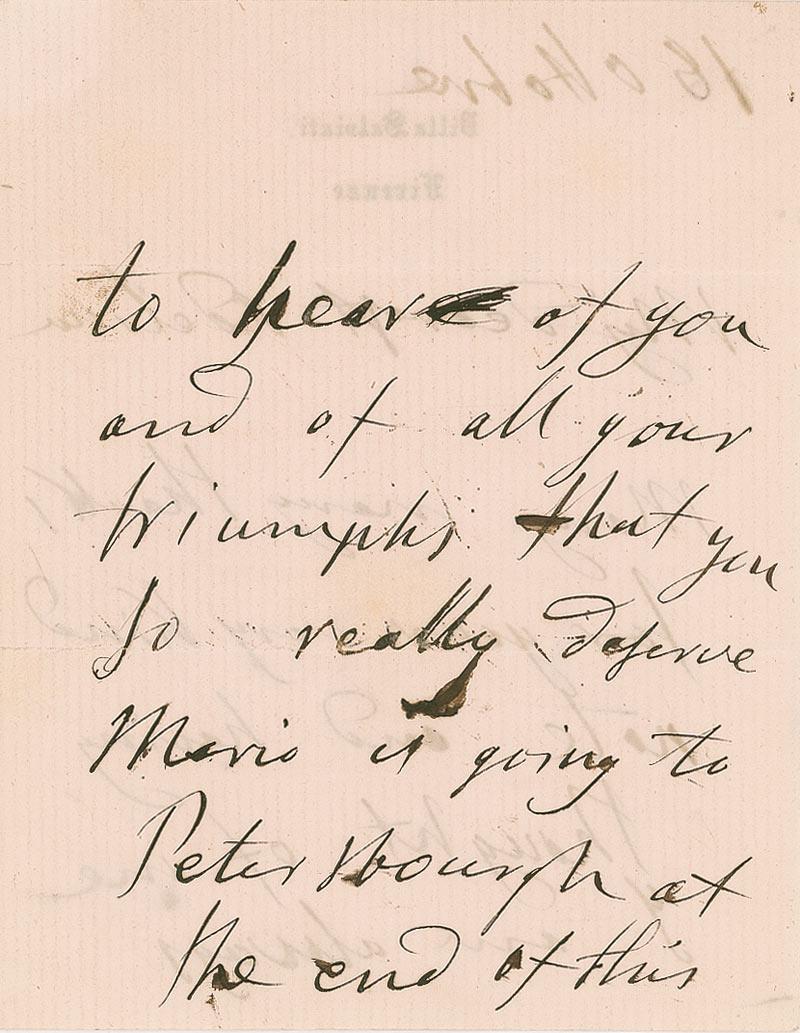 to hear of you
and of all your
triumphs that you
so really deserve
Mario is going to
Petersbourgh at
the end of this